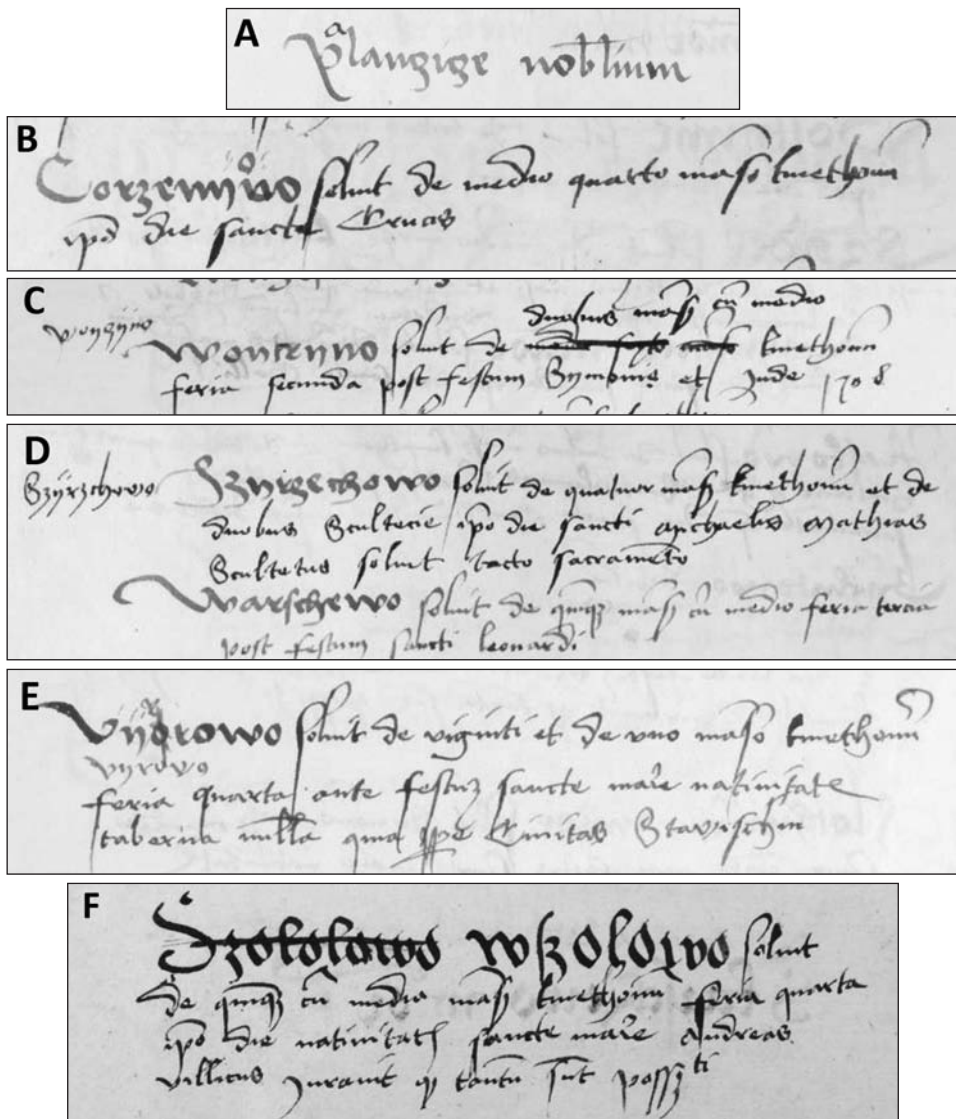 A
planzize nobilium
B
Corzenijewo soluit de medio quarto maso kmethonum
ipso die sancte Crucis
C
duobus mas cum medio
wonzyno Wonteyno soluit de kmethonum
feria secunda post festum Symonis et Jude 1708
D
Szyrzchowo Szyrzechowo soluit de quatuor mas kmethonum et de
duobus Scultecie ipso die sancti Michaelis Mathias
Scultetus soluit tacto sacramento
Warschewo soluit de quinque mas cum medio feria tercia
post festum sancti leonardi
E
Vydrowo soluit de viginti et de vno maso kmethonum
vyrovo
feria quarta ante festum sancte marie natiuitatis
taberna nulla quia prope Ciuitas Stavischin
F
Szololowo wszolowo soluit
de quinque cum medio mas kmethonum feria quarta
ipso die natiuitatis sancte marie Andreas
villicus Jurauit quod tantum sunt possti